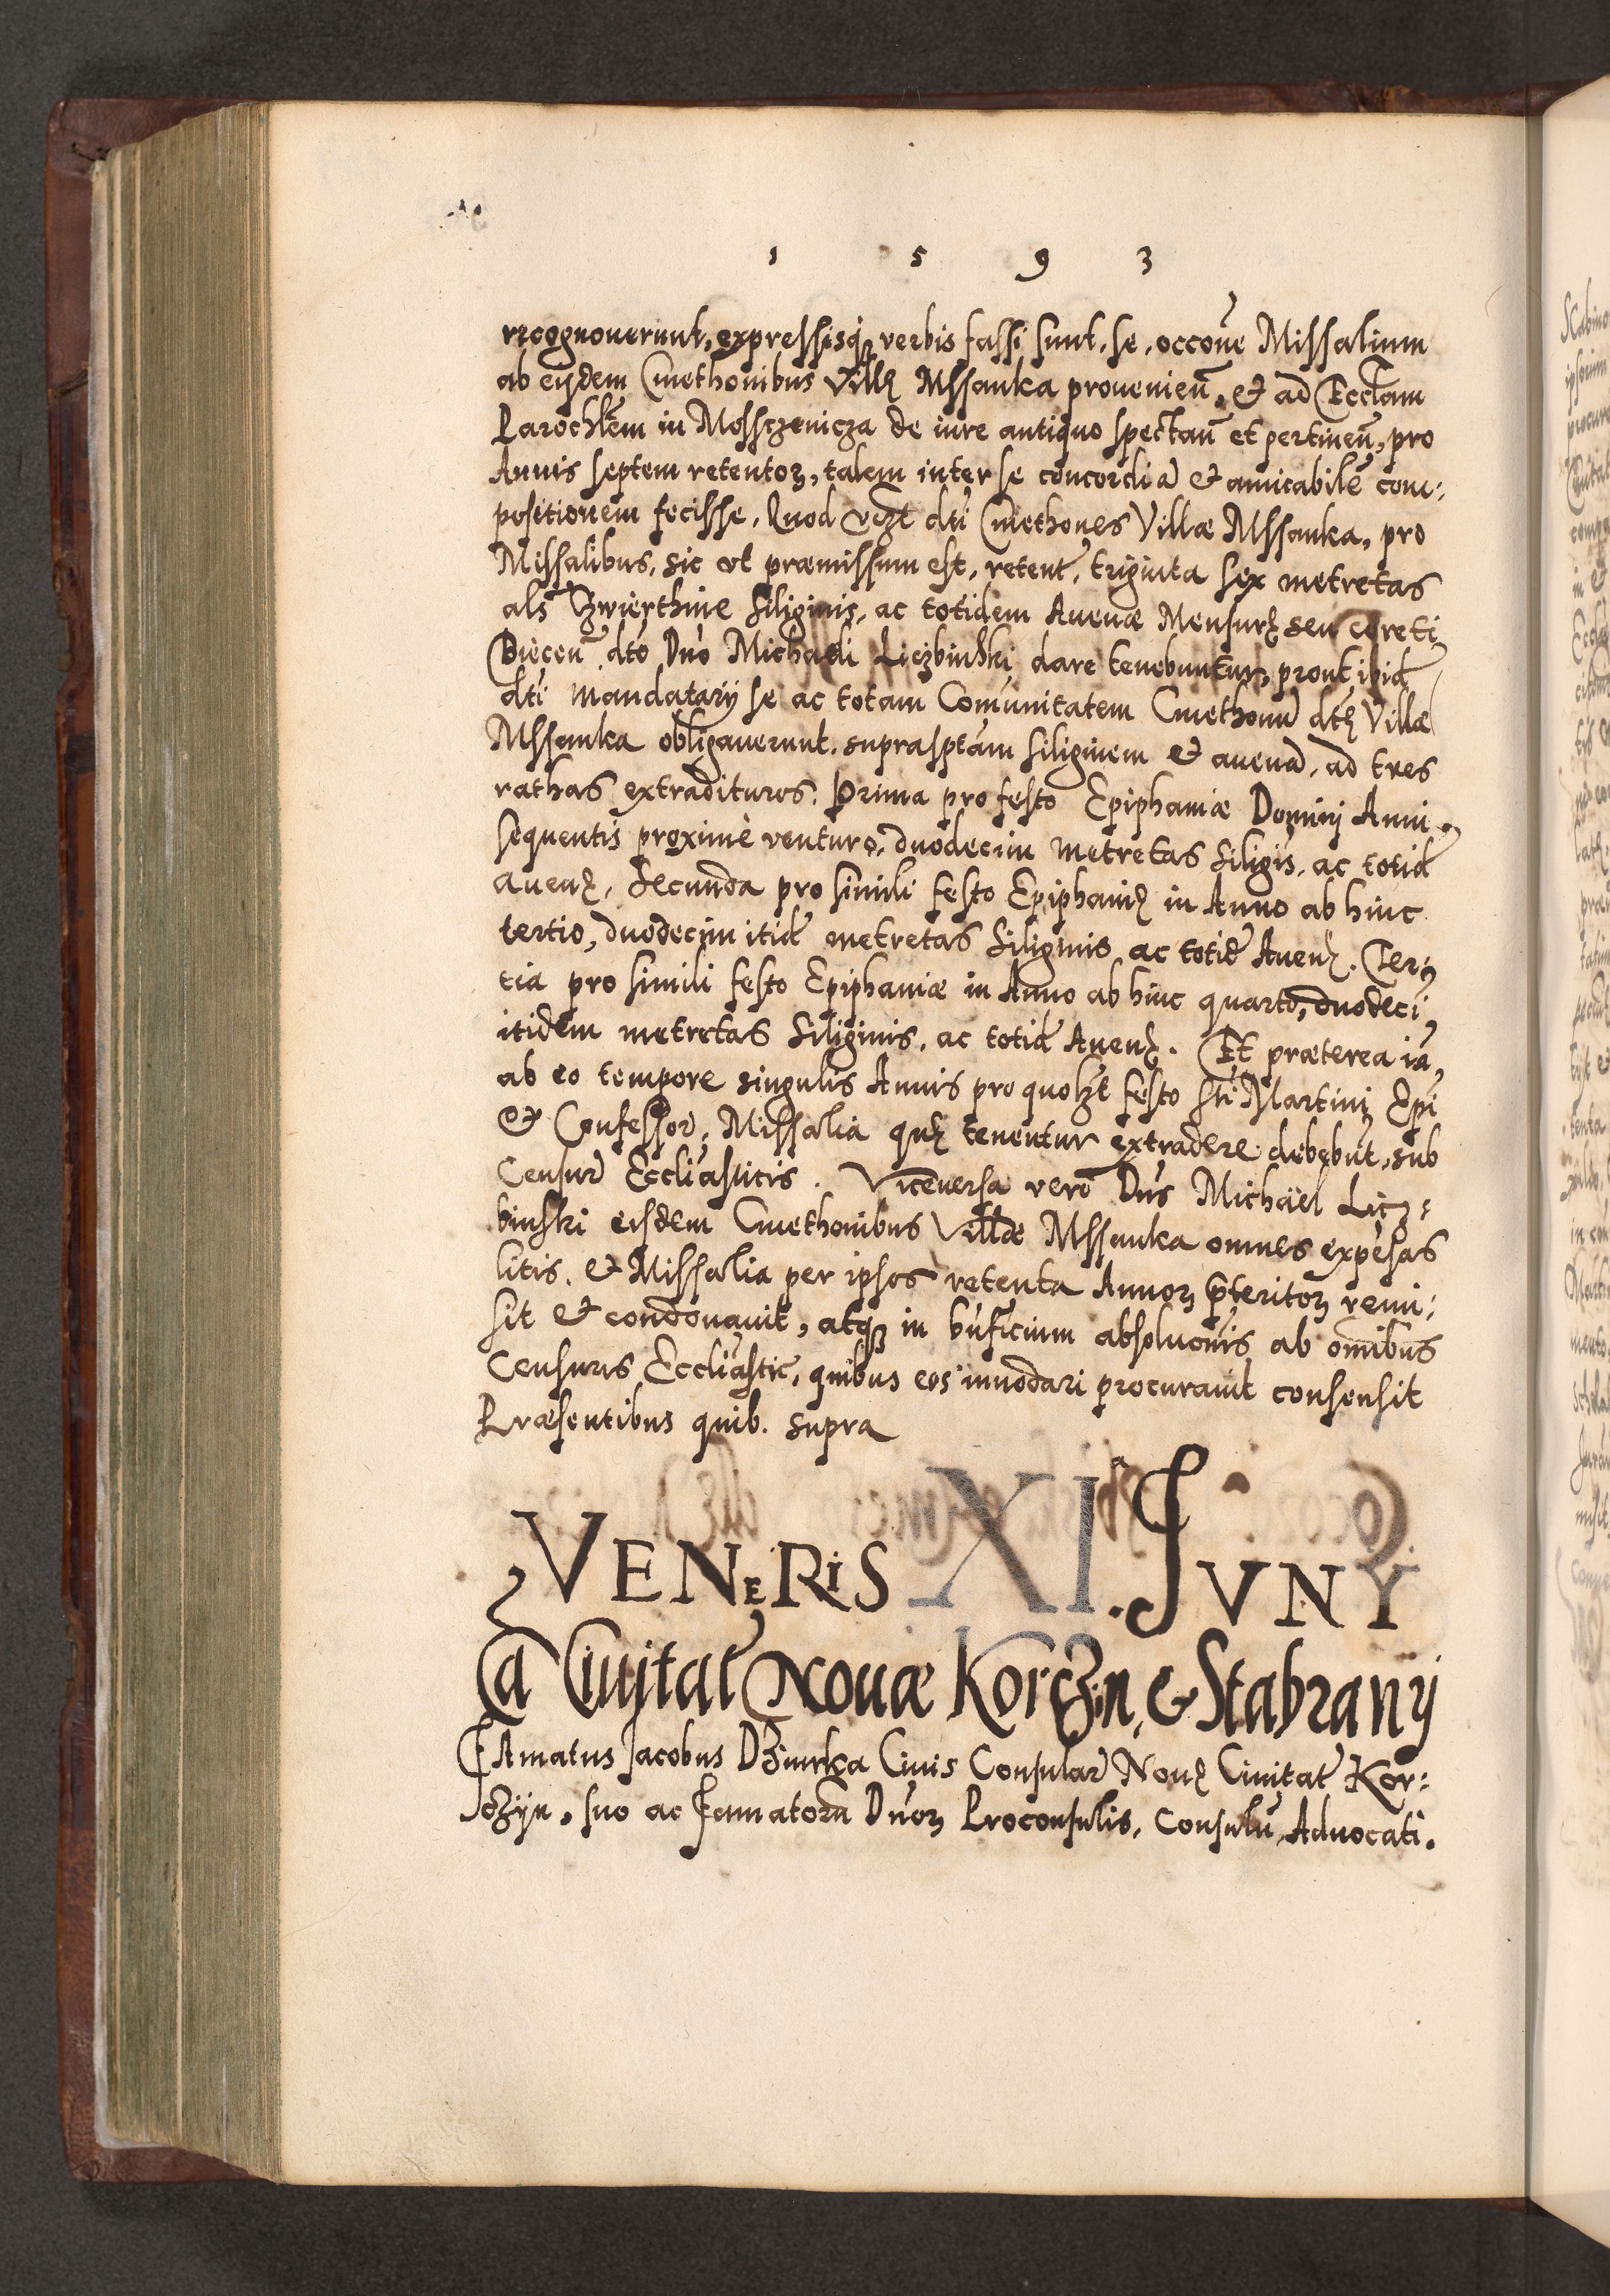 1 5 9 3
recognouerunt, expressisq; verbis fassi sunt, se, occõne Missalium
ab eisdem Cmethonibus Villę Mssanka prouenieñ, et ad Eccłam
Parochłem in Mossczenicza de iure antiquo spectañ et pertineñ, pro
Annis septem retentorꝫ, talem inter se concordiã et amicabilẽ com:
positionem fecisse. Quod vczt dti Cmethones Villæ Mssanka, pro
Missalibus, sic vt præmissum est, retent, triginta sex metretas
als Czwierthnie Siliginis, ac totidem Auenæ Mensurę seu coreti
Bieceñ dto Dño Michaeli Liczbinski dare tenebuntur, prout ibid
dti Mandatarij se ac totam Comunitatem Cmethonũ dtę Villæ
Mssanka obligauerunt, suprasptam siliginem et auenã, ad tres
rathas extradituros. Prima pro festo Epiphaniæ Domini Anni
sequentis proximè venturo, duodecim metretas Siligis, ac totid
auenę, Secunda pro simili festo Epiphanię in Anno ab hinc
tertio, duodecim itid metretas Siliginis ac totid Auenę. Ter:
tia pro simili festo Epiphaniæ in Anno ab hinc quarto, duodeci
itidem metretas Siliginis, ac totid Auenę. Et præterea iã,
ab eo tempore singulis Annis pro quolzt festo Sti Martini Epi
et Confessor, Missalia quę tenentur extradere debebũt, sub
Censur Eccliasticis. Viceuersa verò Dñs Michäel Licz:
binski eisdem Cmethonibus Villæ Mssanka omnes expẽsas
litis, et Missalia per ipsos retenta Annorꝫ p̃teritorꝫ remi:
sit et condonauit, atq; in bñficium absolucõnis ab om̃ibus
Censuris Eccliastic, quibus eos innodari procurauit consensit
Præsentibus quib. supra
VENERIS XIa JVNY
Ca Ciuitat Nouæ Korczin, et Stabranij
Famatus Jacobus Dziurka Ciuis Consular Nouę Ciuitat Kor:
czyn, suo ac Famatorꝫ Dñorꝫ Proconsulis, Consulũ, Aduocati.